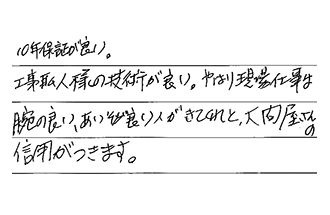 10年保証が良い。
工事職人様の技術が良い。やはり現場仕事は
腕の良い、あいそが良い人がきてくれると、大問屋さんの
信用がつきます。